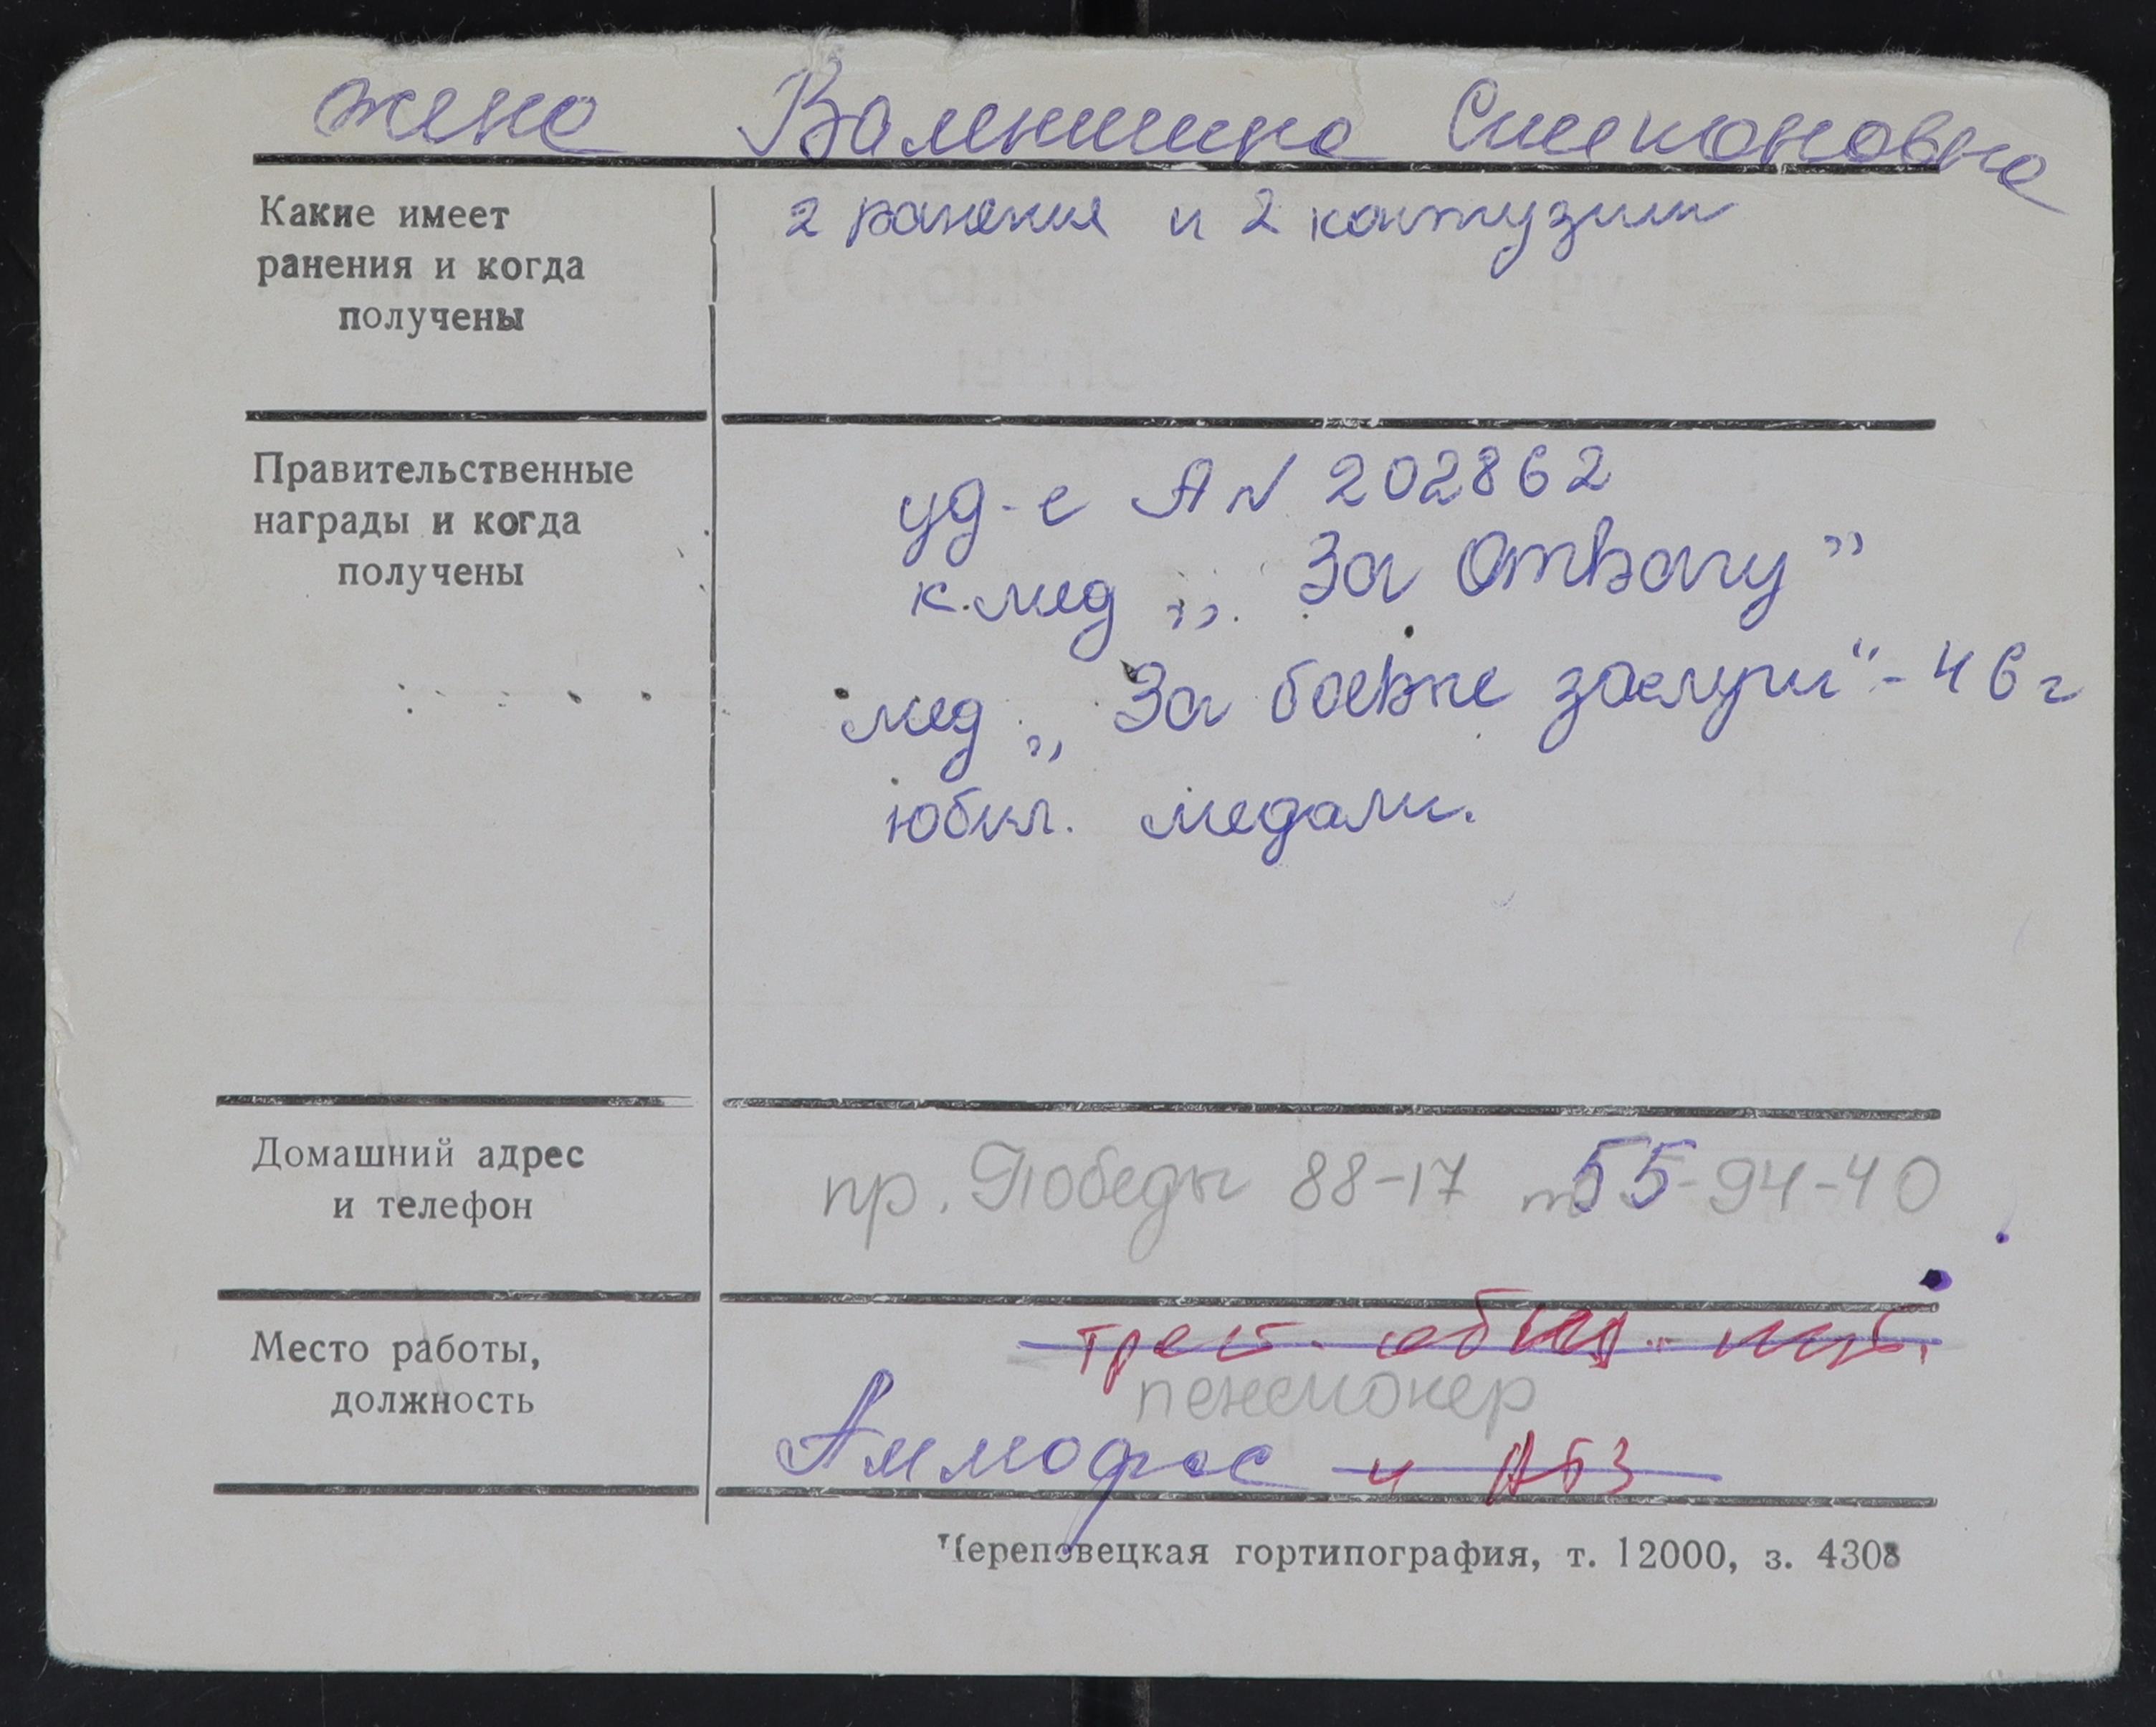 жена Валентина Симоновна
Какие имеет
ранения и когда
получены
2 ранения и 2 контузии
Правительственные
награды и когда
получены
уд-е А N 202862
к мед „За Отвагу”
мед „За боевые заслуги“ - 46 г
юбил. медали.
Домашний адрес
и телефон
пр. Победы 88-17 т 55-94-40
Место работы,
должность
трест
пенсионер
Аммофос и АБЗ
Череповецкая гортипография, т. 12000, з. 4308